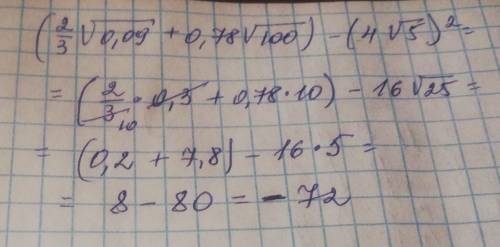 (2/3 √0,09 + 0,78√100) − (4√5)² =
= (2/3 · 0,3 + 0,78 · 10) − 16√25 =
10
= (0,2 + 7,8) − 16 · 5 =
= 8 − 80 = − 72